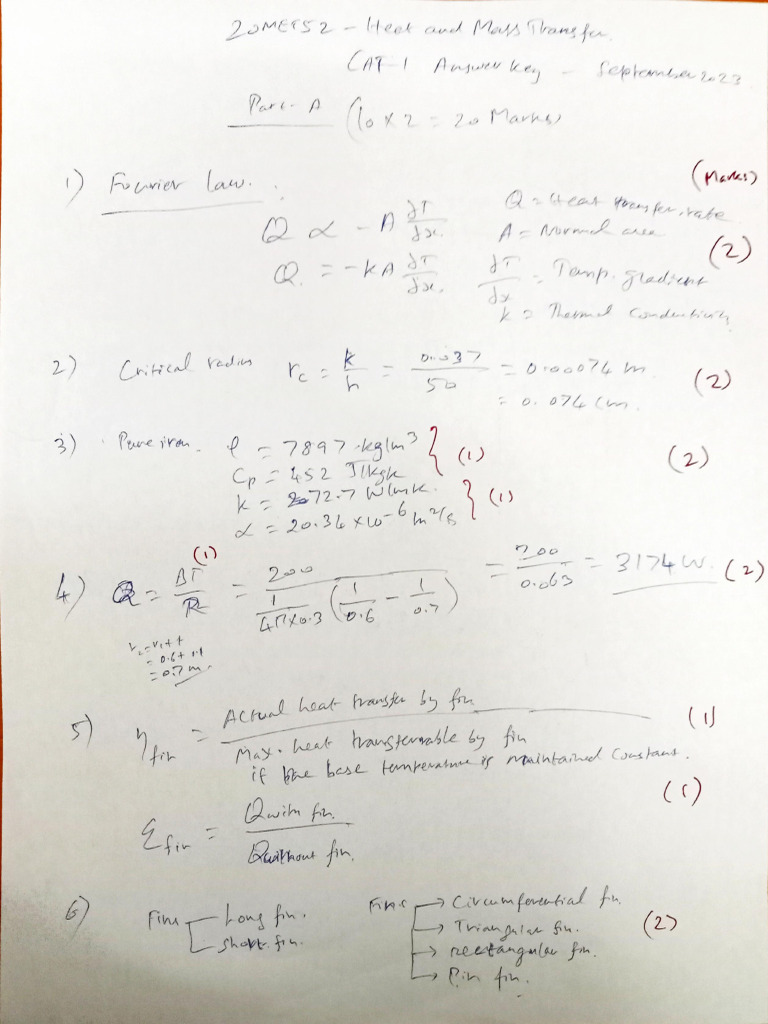 20MET52 - Heat and Mass Transfer
CAT-1 Answer key - September 2023
Part-A (10 x 2 = 20 Marks)
(Marks)
1) Fourier law.
Q ∝ -A dT/dx Q = Heat transfer rate
A = Normal area
(2)
Q = -kA dT/dx dT/dx = Temp. gradient
k = Thermal conductivity
2) Critical radius rc = k/h = 0.037/50 = 0.00074 m (2)
= 0.074 cm.
3) Pure iron. ρ = 7897 kg/m³ } (1) (2)
Cp = 452 J/kgk
k = 72.7 W/mk. } (1)
α = 20.34 x 10⁻⁶ m²/s
4) Q = ΔT/R (1) = 200 / 1/4π×0.3 (1/0.6 - 1/0.7) = 200/0.063 = 3174 W. (2)
r₂ = r₁ + t
= 0.6 + 0.1
= 0.7 m.
5) η fin = Actual heat transfer by fin (1)
Max. heat transferrable by fin
if the base temperature is maintained constant.
(1)
ε fin = Q with fin.
Q without fin.
6) Fins Long fin. Fins → Circumferential fin.
short fin. → Triangular fin. (2)
→ rectangular fin.
→ Pin fin.